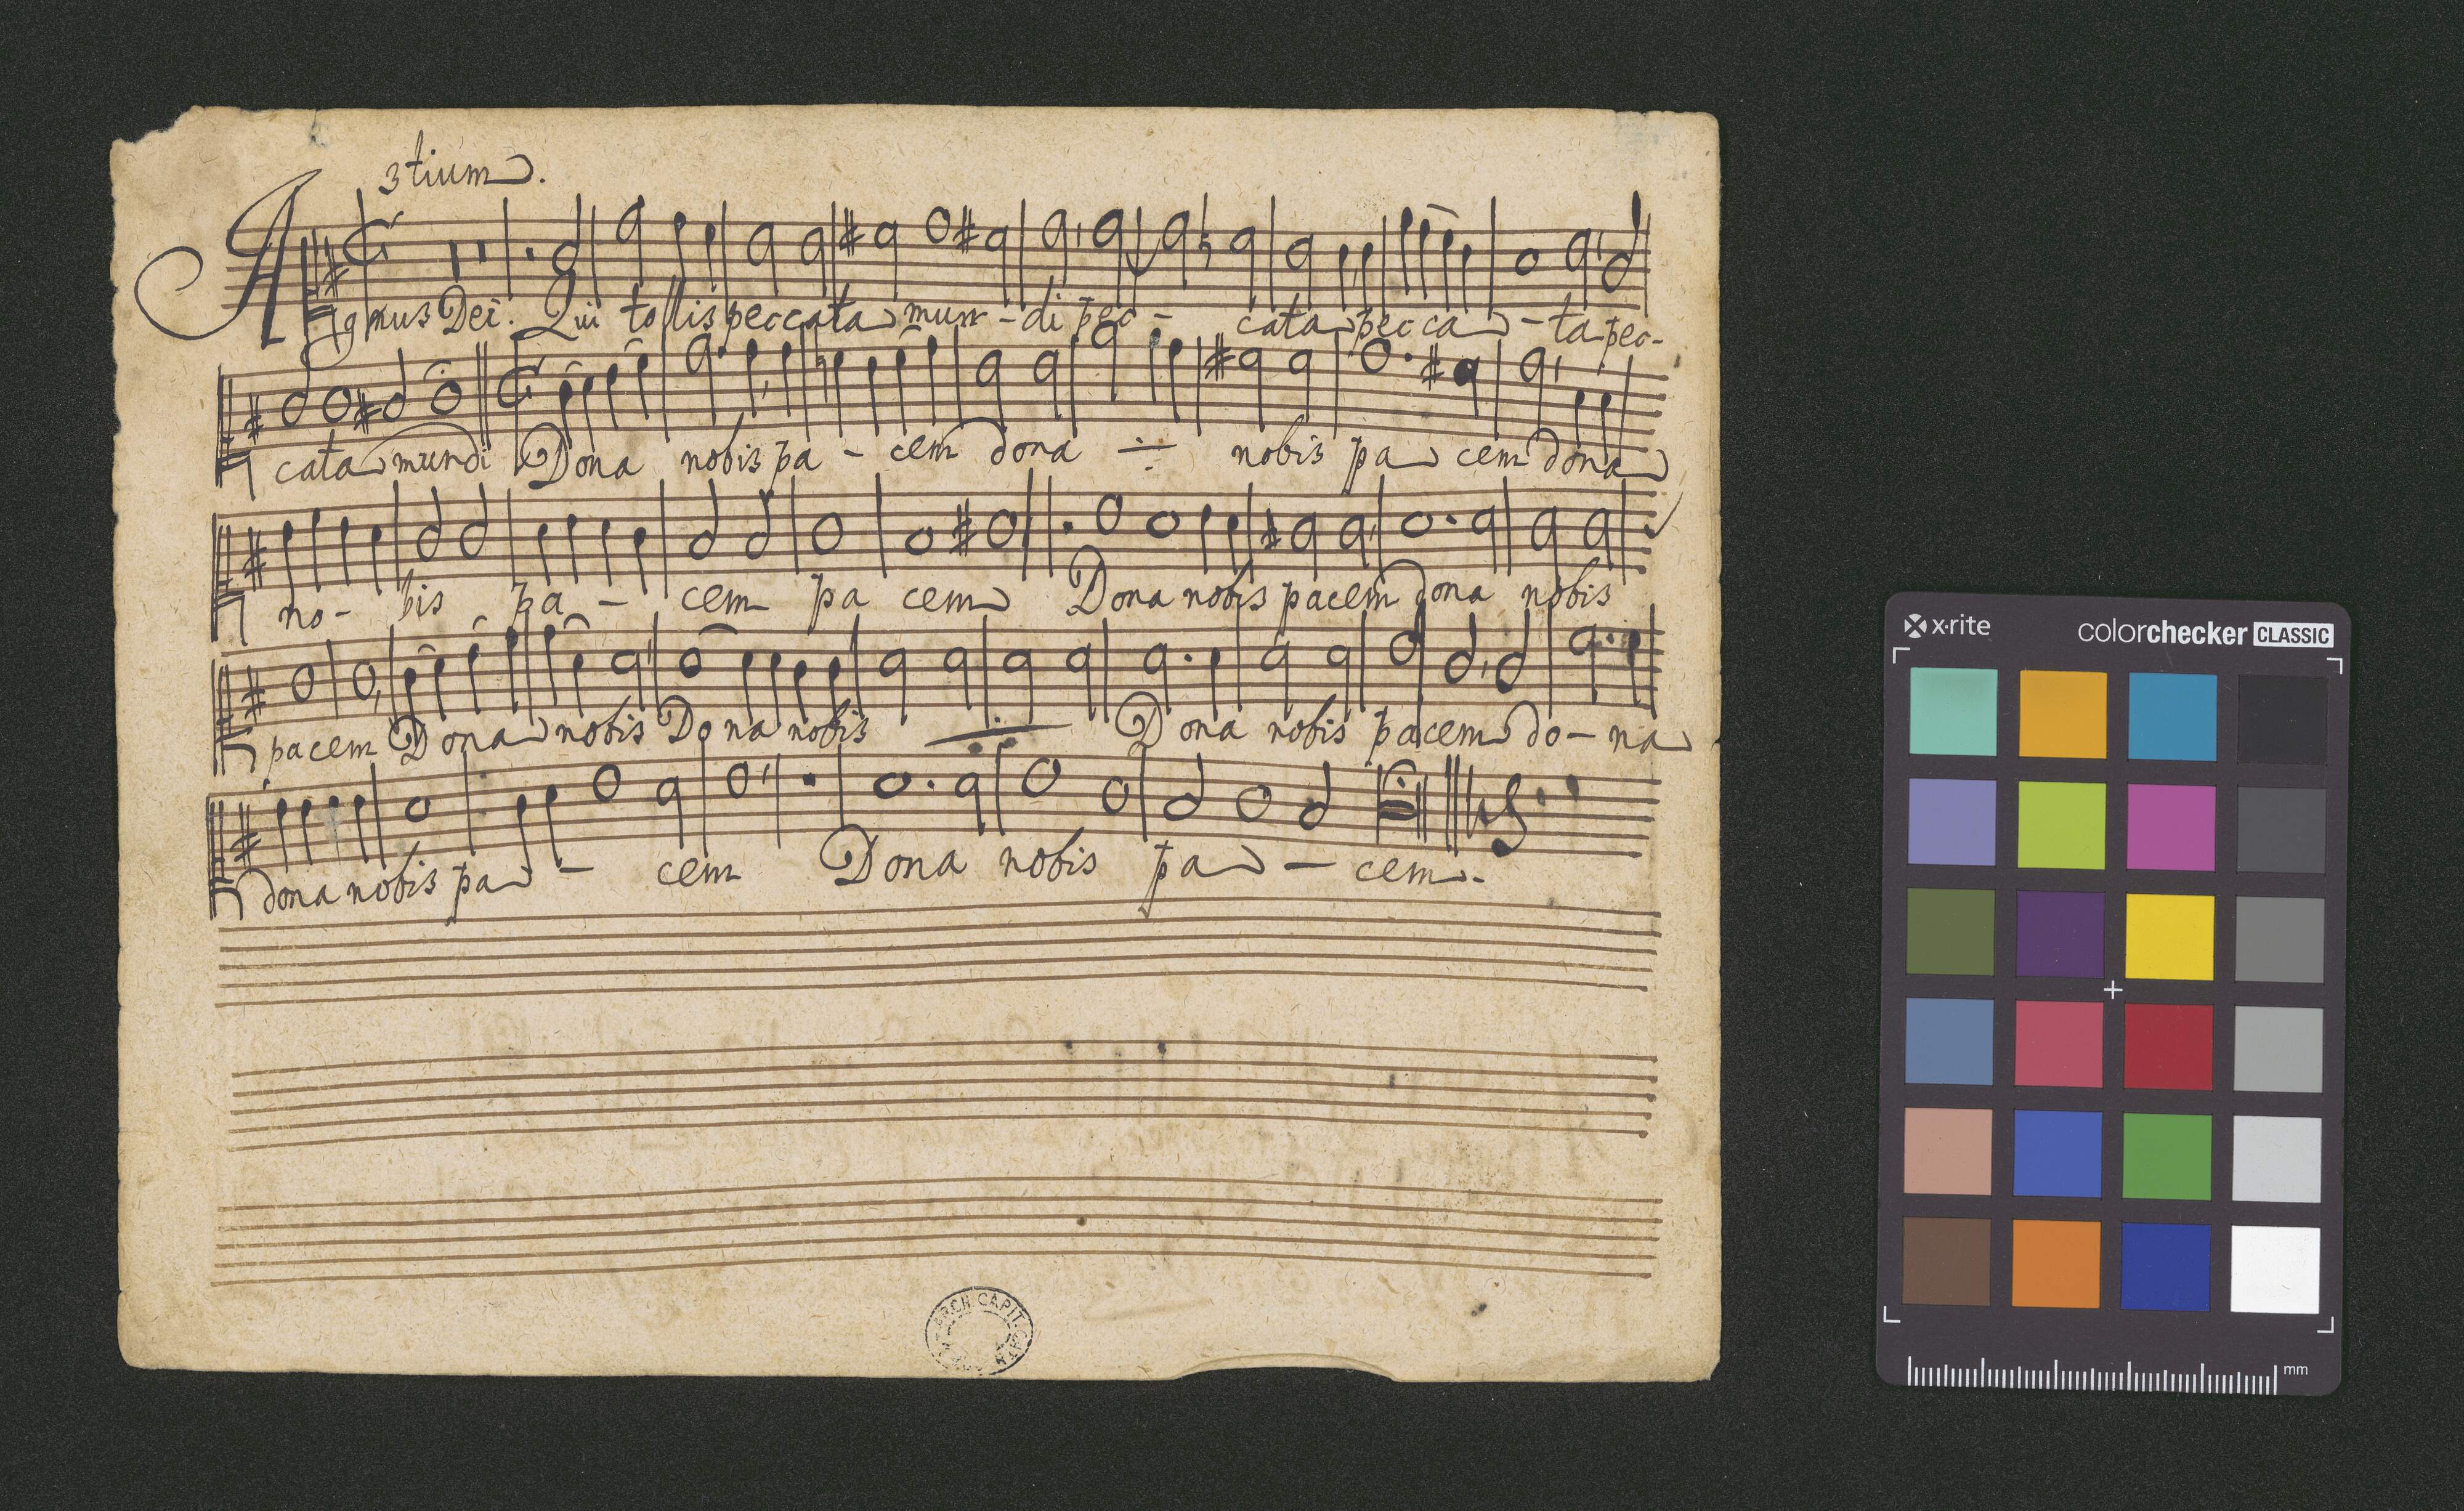 3tium.
Agnus Dei. Qui tollis peccata mun - di pec - cata pecca - ta pec-
cata mundi Dona nobis pa - cem dona ÷ nobis pa cem dona
no - bis pa - cem pa cem Dona nobis pacem dona nobis
pacem Dona nobis Dona nobis ÷ Dona nobis pacem do - na
dona nobis pa - cem Dona nobis pa - cem.
ARCH CAPIT
x-rite colorchecker CLASSIC
mm